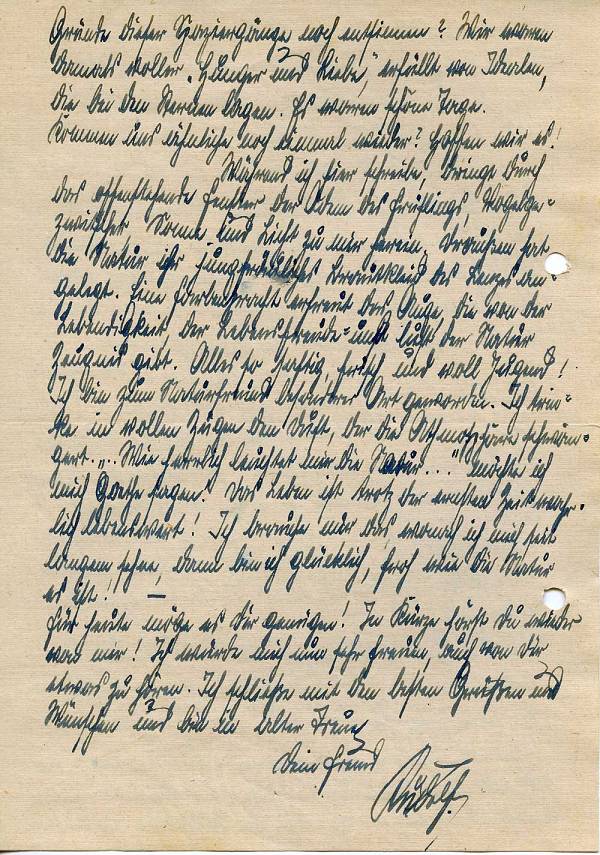 Gründe dieser Spaziergänge noch entsinnen? Wir waren
damals voller „Hunger und Liebe,“ erfüllt von Idealen,
die bei den Sternen lagen. Es waren schöne Tage.
Kommen uns ähnliche noch einmal wieder? Hoffen wir es!
Während ich hier schreibe, dringt durch
das offenstehende Fenster der Odem des Frühlings, Vogelge=
zwitscher Sonne und Licht zu mir herein. Draußen hat
die Natur ihr jungfräuliches Brautkleid des Lenzes an=
gelegt. Eine Farbenpracht erfreut das Auge, die von der
Lebendigkeit, der Lebensfreude= und lust der Natur
Zeugnis gibt. Alles so saftig, frisch und voll Jugend!
Ich bin zum Naturfreund besonderer Art geworden. Ich trin=
ke in vollen Zügen den Duft, der die Athmosphäre schwän=
gert. „... Wie herrlich leuchtet mir die Natur...“ möchte ich
mich Goethe sagen! Das Leben ist trotz der ernsten Zeit wahr=
lich lebenswert! Ich brauche nur das, wonach ich mich seit
langem sehne, dann bin ich glücklich, froh wie die Natur
es ist! —
Für heute möge es Dir genügen! In Kürze hörst Du wieder
von mir! Ich würde mich nun sehr freuen, auch von Dir
etwas zu hören. Ich schließe mit den besten Grüßen und
Wünschen und bin in alter Treue
Dein Freund
Rudolf.